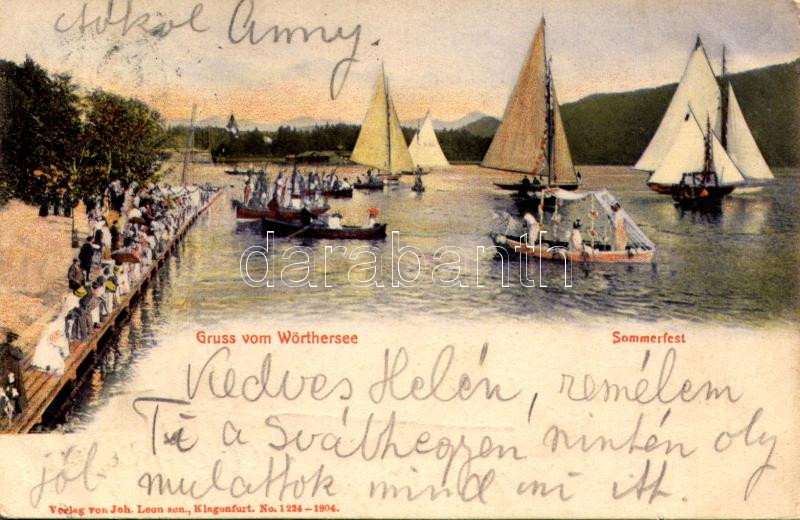 csókol Anny.
darabanth
Gruss vom Wörthersee
Sommerfest
Kedves Helén, remélem
Ti a Svábhegyen szintén oly
jól mulattok mind mi itt.
Verlag von Joh. Leon sen., Klagenfurt. No. 1224–1904.